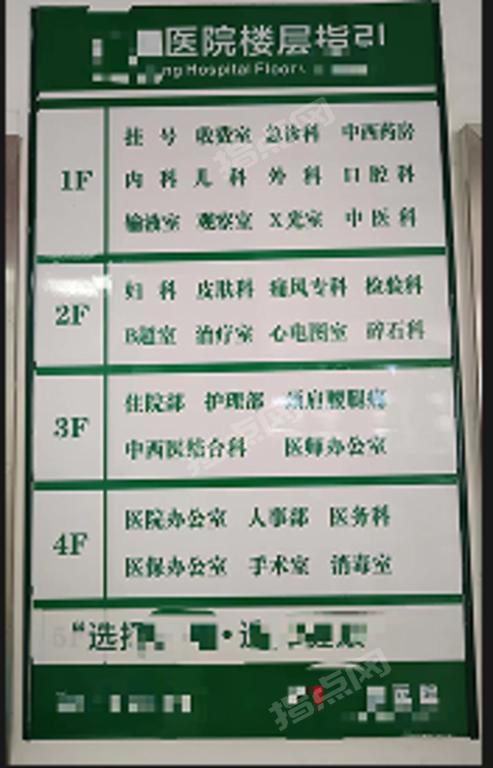 医院楼层指引
ng Hospital Floor
1F
挂号 收费室 急诊科 中西药房
内科 儿科 外科 口腔科
输液室 观察室 X光室 中医科
2F
妇科 皮肤科 痛风专科 检验科
B超室 治疗室 心电图室 碎石科
3F
住院部 护理部 颈肩腰腿痛
中西医结合科 医师办公室
4F
医院办公室 人事部 医务科
医保办公室 手术室 消毒室
5F
“选择
指点网